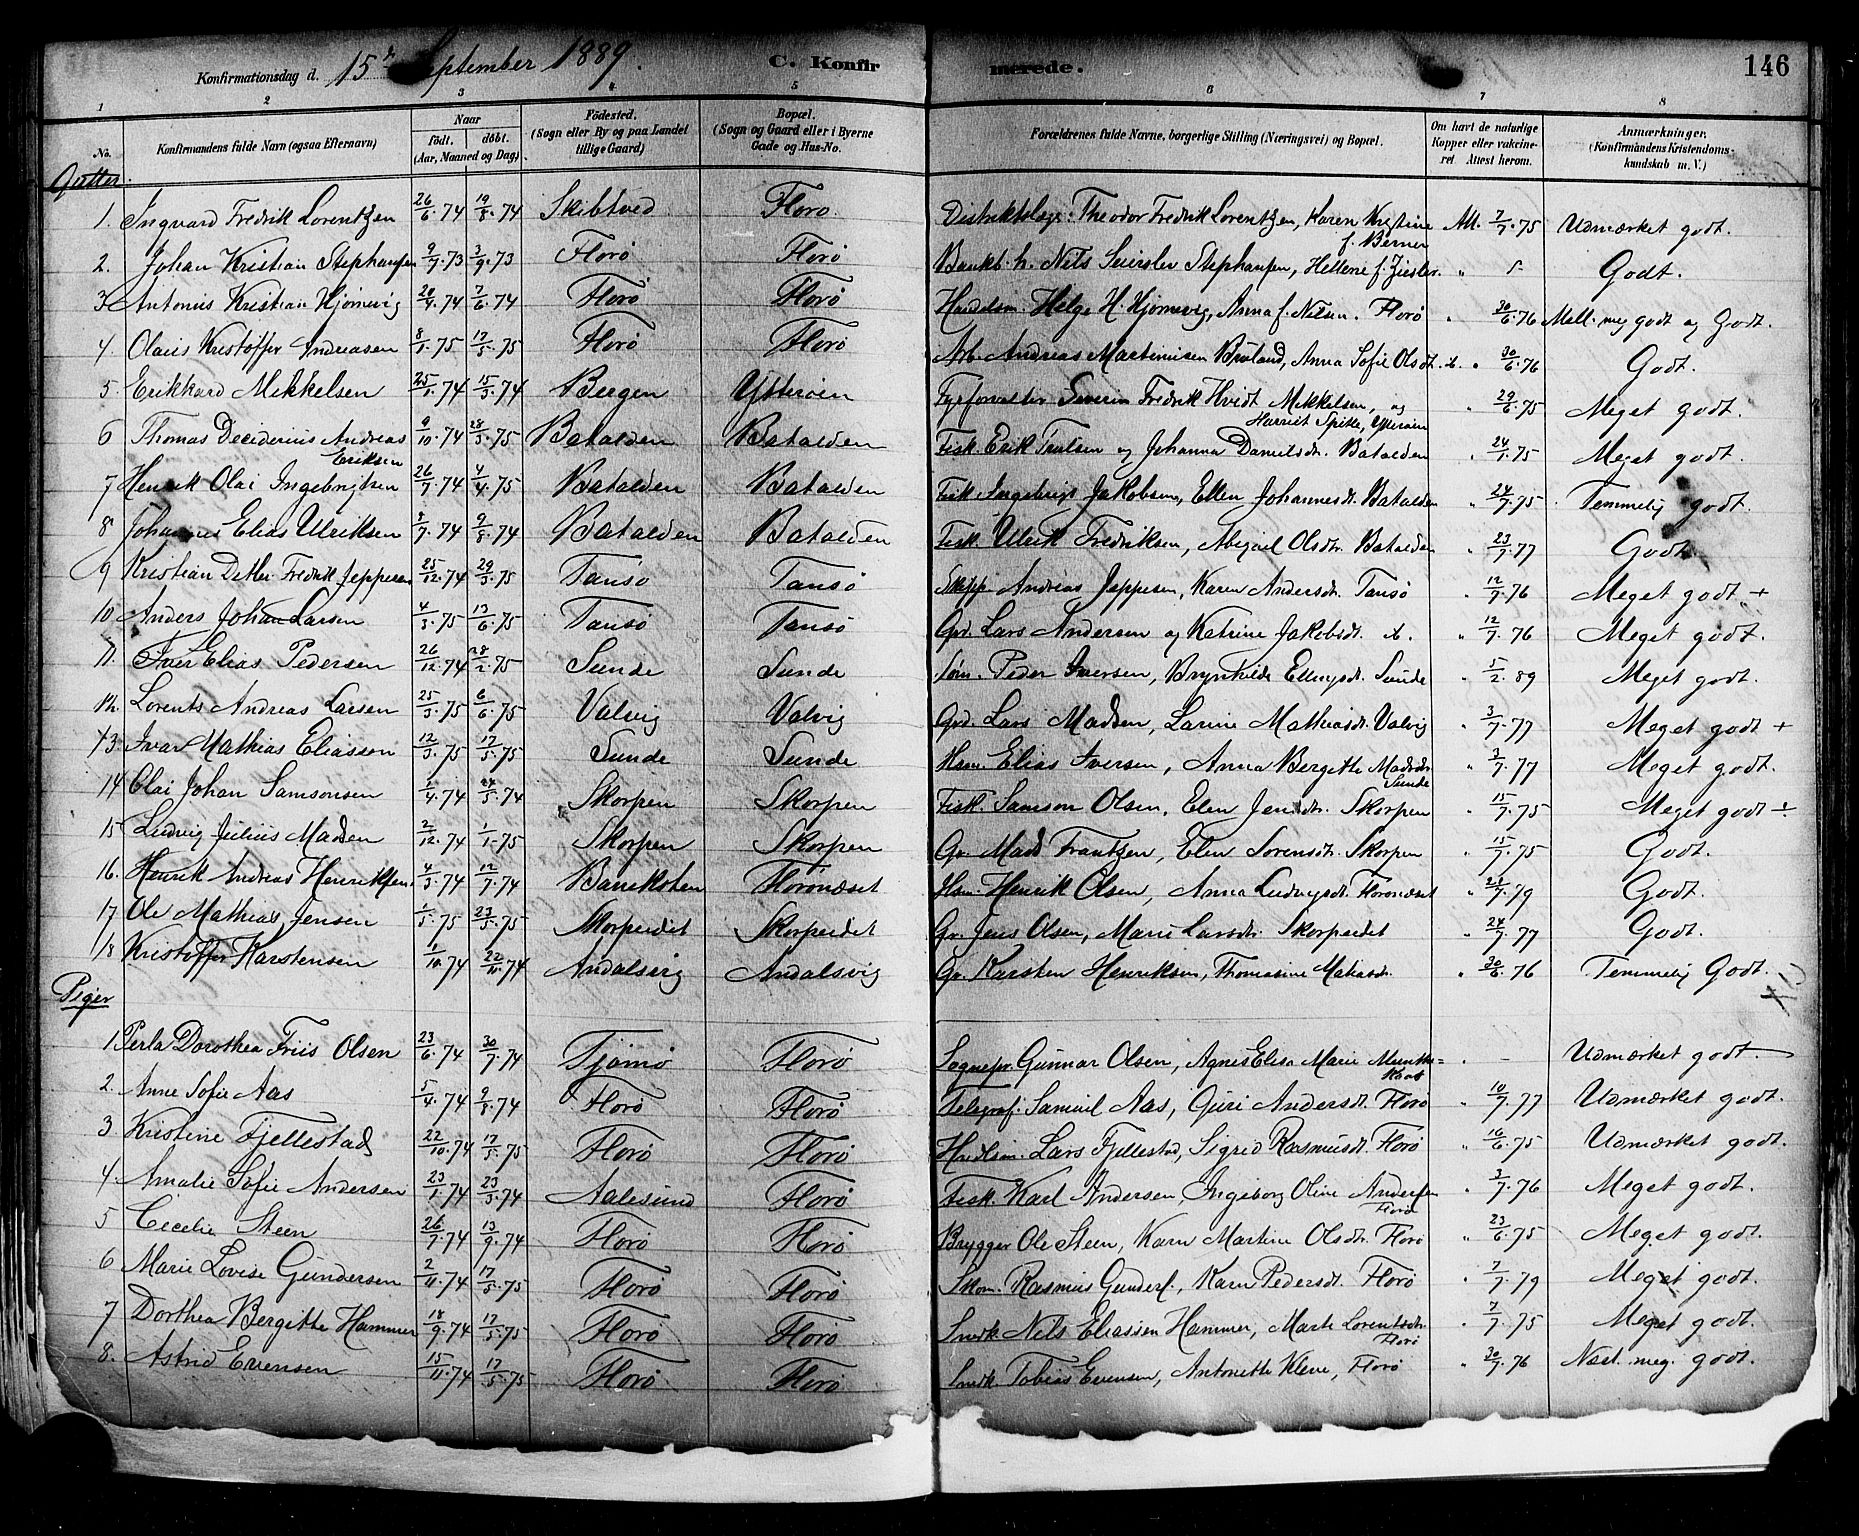 Konfirmationsdag d. 15de September 1889. C. Konfirmerede. 146
1 2 3 4 5 6 7 8
No. Konfirmandens fulde Navn (ogsaa Efternavn) Naar født. døbt. (Aar, Maaned og Dag) Fødested. (Sogn eller By og paa Landet tillige Gaard) Bopæl. (Sogn og Gaard eller i Byerne Gade og Hus-No. Forældrenes fulde Navne, borgerlige Stilling (Næringsvei) og Bopæl. Om havt de naturlige Kopper eller vakcineret. Attest herom. Anmærkninger. (Konfirmandens Kristendomskundskab m. V.)
Gutter.
1. Ingvard Fredrik Lorentzen 26/6.74 19/8.74 Skibtved Florø Distriktslæge: Theodor Fredrik Lorentzen, Karen Kristine f. Berner Att. 7/7.75 Udmærket godt.
2. Johan Kristian Stephansen 9/7.73 3/9.73 Florø Florø Bankb.h. Nils Seierslev Stephansen, Hellene f. " Godt.
3 Antonius Kristian Hjørnevig 20/4.74 7/6.74 Florø Florø Handelsm. Helge H. Hjørnevig, Anna f. Nilsen. Florø " 30/6.76 Mell. meg godt og Godt.
4. Olaus Kristoffer Andreasen 8/1.75 17/5.75 Florø Florø Arb. Andreas Martinusen Bruland, Anna Sofie Olsdt. " 30/6.76 Godt.
5 Erikkard Mikkelsen 25/1.74 15/3.74 Bergen Ytterøen Fyrforvalter Severin Fredrik Hvidt Mikkelsen, og Harriet Spitte, Ytterøen " 29/6.75 Meget godt.
6 Thomas Deciderius Andreas Eriksen 9/10.74 28/3.75 Batalden Batalden Fisk. Erik Trulsen og Johanna Danielsdt. Batalden " 24/7.75 Meget godt.
7 Henrik Olai Ingebrigtsen 26/7.74 4/4.75 Batalden Batalden Fisk. Ingebrigt Jakobsen, Ellen Johannesdt. Batalden " 24/7.75 Temmelig godt.
8 Johannes Elias Ulriksen 8/7.74 9/8.74 Batalden Batalden Fisk. Ulrik Fredriksen, Abigael Olsdt. Batalden " 23/7.77 Godt
9 Kristian Detlev Fredrik Jeppesen 25/12.74 29/3.75 Tansø Tansø Skipp. Andreas Jeppesen, Karen Andersdt. Tansø " 12/7.76 Meget godt +
10 Anders Johan Larsen 4/3.75 13/6.75 Tansø Tansø Grd. Lars Andersen og Katrine Jakobsdt. " 12/7.76 Meget godt.
11. Iver Elias Pedersen 26/12.74 28/2.75 Sunde Sunde Peder Iversen, Brynhilde Ellingsdt. Sunde " 5/2.89 Meget godt.
12. Lorents Andreas Larsen 25/3.75 6/6.75 Valvig Valvig Grd. Lars Madsen, Larine Mathiasdt. Valvig " 3/7.77 Meget godt +
13 Ivar Mathias Eliassen 12/3.75 17/5.75 Sunde Sunde Hsm. Elias Iversen, Anna Bergitte Madsdt. Sunde " 3/7.77 Meget godt.
14 Olai Johan Samsonsen 1/4.74 24/5.74 Skorpen Skorpen Fisk. Samson Olsen, Elen Jensdt. Skorpen " 15/7.75 Meget godt ÷
15 Ludvig Julius Madsen 2/12.74 1/1.75 Skorpen Skorpen Gr. Mads Frantzen, Elen Sorensdt. Skorpen " 15/7.75 Godt.
16. Henrik Andreas Henriksen 4/3.74 12/7.74 Barekoten Florønæset Hsm. Henrik Olsen, Anna Ludvigsdt. Florønæset " 28/7.79 Godt.
17 Ole Mathias Jensen 1/5.75 23/5.75 Skorpeidet Skorpeidet Gr. Jens Olsen, Marie Larsdt. Skorpeidet " 24/7.77 Godt.
18 Kristoffer Karstensen 1/10.74 22/11.74 Andalsvig Andalsvig Gr. Karsten Henriksen, Thomasine Matiasdt. " 30/6.76 Temmelig Godt.
Piger
1 Perla Dorothea Friis Olsen 23/6.74 30/7.74 Tjømø Florø Sognepr. Gunnar Olsen, Agnes Elisa Marie Munthe-Kaas " – Udmærket godt.
2. Anne Sofie Aas 5/4.74 9/8.74 Florø Florø Telegraf. Samuel Aas, Guri Andersdt. Florø " 10/7.77 Udmærket godt.
3 Kristine Fjellestad 22/10.74 17/5.75 Florø Florø Hndlsm. Lars Fjellestad, Sigrid Rasmusdt. Florø " 16/6.75 Udmærket godt.
4 Amalie Sofie Andersen 23/1.74 23/3.74 Aalesund Florø Fisk. Karl Andersen, Ingeborg Oline Andersen Florø " 3/7.76 Meget godt.
5 Cecelie Steen 26/7.74 13/9.74 Florø Florø Brygger Ole Steen, Karn Martine Olsdt. Florø " 23/6.75 Meget godt.
6 Marie Lovise Gundersen 2/11.74 17/5.75 Florø Florø Skom. Rasmus Gunders., Karn Pedersdt. Florø " 7/7.79 Meget godt.
7 Dorthea Bergitte Hammer 18/9.74 17/5.75 Florø Florø Snedk. Nils Eliassen Hammer, Marte Lorentsdt. Florø " 7/7.75 Meget godt.
8. Astrid Evensen 15/11.74 17/5.75 Florø Florø Snedk. Tobias Evensen, Antonette Kleve, Florø " 30/7.76 Næst. meg. godt.